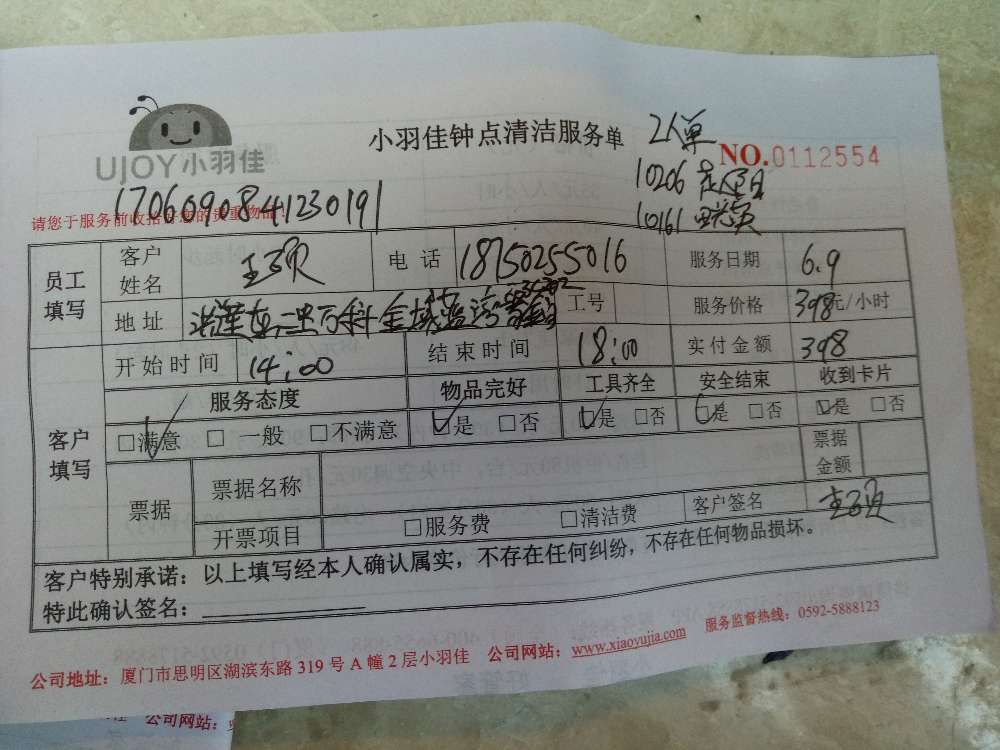 小羽佳钟点清洁服务单 2人单
UJOY小羽佳
NO.0112554
10206
10161
1706090841230191
请您于服务前收拾好您的贵重物品！
员工填写 客户姓名 王 电话 18750255016 服务日期 6.9
地址 万科金域蓝湾 工号 服务价格 398元/小时
客户填写 开始时间 14:00 结束时间 18:00 实付金额 398
服务态度 物品完好 工具齐全 安全结束 收到卡片
□满意 □一般 □不满意 □是 □否 □是 □否 □是 □否 □是 □否
票据 票据名称 票据金额
开票项目 □服务费 □清洁费 客户签名
客户特别承诺：以上填写经本人确认属实，不存在任何纠纷，不存在任何物品损坏。
特此确认签名：
公司地址：厦门市思明区湖滨东路 319 号 A 幢 2 层小羽佳 公司网站：www.xiaoyujia.com 服务监督热线：0592-5888123
佳 公司网站：